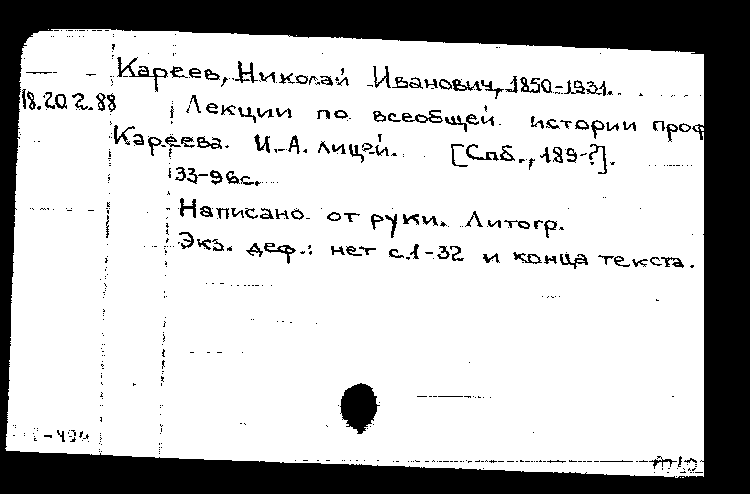 Кареев, Николай Иванович, 1850-1931.
18.20.2.88
Лекции по всеобщей истории проф
Кареева. И.-А. лицей. [Спб., 189-?].
33-96с.
Написано от руки. Литогр.
Экз. деф.: нет с.1-32 и конца текста.